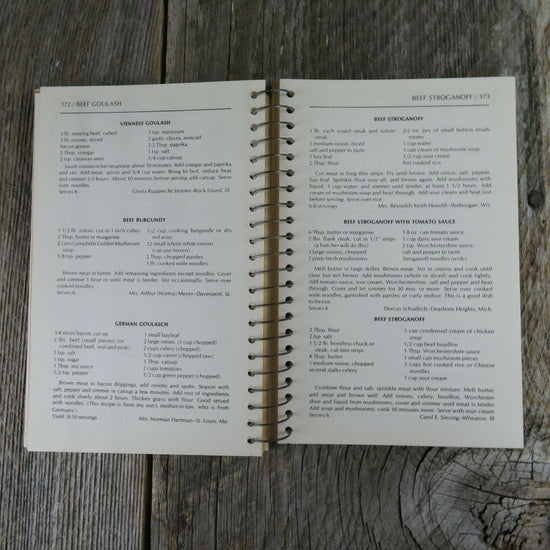 172 / BEEF GOULASH
VIENNESE GOULASH
3 lb. stewing beef, cubed
2 lb. onions, sliced
bacon grease
2 Tbsp. vinegar
2 tsp. caraway seed
1 tsp. marjoram
2 garlic cloves, minced
2-3 Tbsp. paprika
1 tsp. salt
1/4 cup catsup
Saute onions in bacon grease about 10 minutes. Add vinegar and paprika
and stir. Add meat, spices and 3/4 cup water. Bring to boil, reduce heat
and simmer 2-3 hours. About 10 minutes before serving add catsup. Serve
over noodles.
Serves 6
Gloria Rupprecht Strieter-Rock Island, Ill.
BEEF BURGUNDY
1 1/2 lb. sirloin, cut in 1 inch cubes
2 Tbsp. butter or margarine
2 cans Campbell's Golden Mushroom
soup
1/8 tsp. pepper
1/2 cup cooking burgundy or dry
red wine
12 small whole white onions
(can use frozen)
2 Tbsp. chopped parsley
1 lb. cooked wide noodles
Brown meat in butter. Add remaining ingredients except noodles. Cover
and simmer 1 hour or until meat is tender. Stir occasionally. Serve over
cooked noodles.
Serves 6
Mrs. Arthur (Norma) Meyer-Davenport, Ia.
GERMAN GOULASCH
3-4 slices bacon, cut up
2 lbs. beef (small pieces) (or
combined beef, veal and pork)
1 tsp. salt
1 tsp. sugar
1 Tbsp. soy sauce
1/2 tsp. pepper
1 small bayleaf
2 large onion, (1 cup chopped)
2 cups celery (chopped)
1/2 cup carrot (chopped raw)
3 Tbsp. catsup
2 cups tomatoes
1/2 cup green pepper (chopped)
Brown meat in bacon drippings, add onions and saute. Season with
salt, pepper and simmer a few minutes. Add rest of ingredients
and cook slowly about 2 hours. Thicken gravy with flour. Good served
with noodles. (This recipe is from my son's mother-in-law, who is from
Germany.)
Yield: 8-10 servings
Mrs. Norman Hartman-St. Louis, Mo
BEEF STROGANOFF / 173
BEEF STROGANOFF
1 lb. each round steak and sirloin
steak
1 medium onion, diced
salt and pepper to taste
1 bay leaf
2 Tbsp. flour
2-2 oz. jars of small button mush-
rooms
1 cup water
1 can cream of mushroom soup
1/2 cup sour cream
hot cooked rice
Cut meat in long thin strips. Fry until brown. Add onion, salt, pepper,
bay leaf. Sprinkle flour over all, and brown again. Add mushrooms with
liquid, 1 cup water, and simmer until tender, at least 1 1/2 hours. Add
cream of mushroom soup and heat through. Add sour cream and heat just
before serving. Serve over rice.
6-8 servings
Mrs. Reynolds Keith Honold-Sheborgan, Wis.
BEEF STROGANOFF WITH TOMATO SAUCE
6 Tbsp. butter or margarine
2 lbs. flank steak, cut in 1/2" strips
(a butcher will do this)
3 large onions, chopped
2 pints fresh mushrooms
1 8-oz. can tomato sauce
1 cup dairy sour cream
2 tsp. Worchestershire sauce
salt and pepper to taste
Stroganoff noodles (wide)
Melt butter in large skillet. Brown meat. Stir in onions and cook until
clear but not brown. Add mushrooms (whole or sliced) and cook lightly.
Add tomato sauce, sour cream, Worchestershire, salt, pepper and heat
through. Cover and let simmer for 30 min. or more. Serve over cooked
wide noodles, garnished with parsley or curly endive. This is a good dish
to freeze.
Serves 6
Dorcas Schudlich-Dearborn Heights, Mich.
BEEF STROGANOFF
2 Tbsp. flour
2 tsp. salt
1 1/2 lb. boneless chuck or
steak, cut into strips
4 Tbsp. butter
1 medium onion, chopped
several stalks celery
1 can condensed cream of chicken
soup
1/2 cup beef bouillon
1 Tbsp. Worchestershire sauce
1 small can mushroom pieces
3 cups hot cooked rice or Chinese
noodles
1 cup sour cream
Combine flour and salt; sprinkle meat with flour mixture. Melt butter,
add meat and brown well. Add onions, celery, bouillon, Worcester
shire and liquid from mushrooms, cover and simmer until meat is tender.
Add soup and mushrooms, cook 10 minutes more. Serve with sour cream
Serves 6
Carol E. Sieving-Wheaton, Ill.